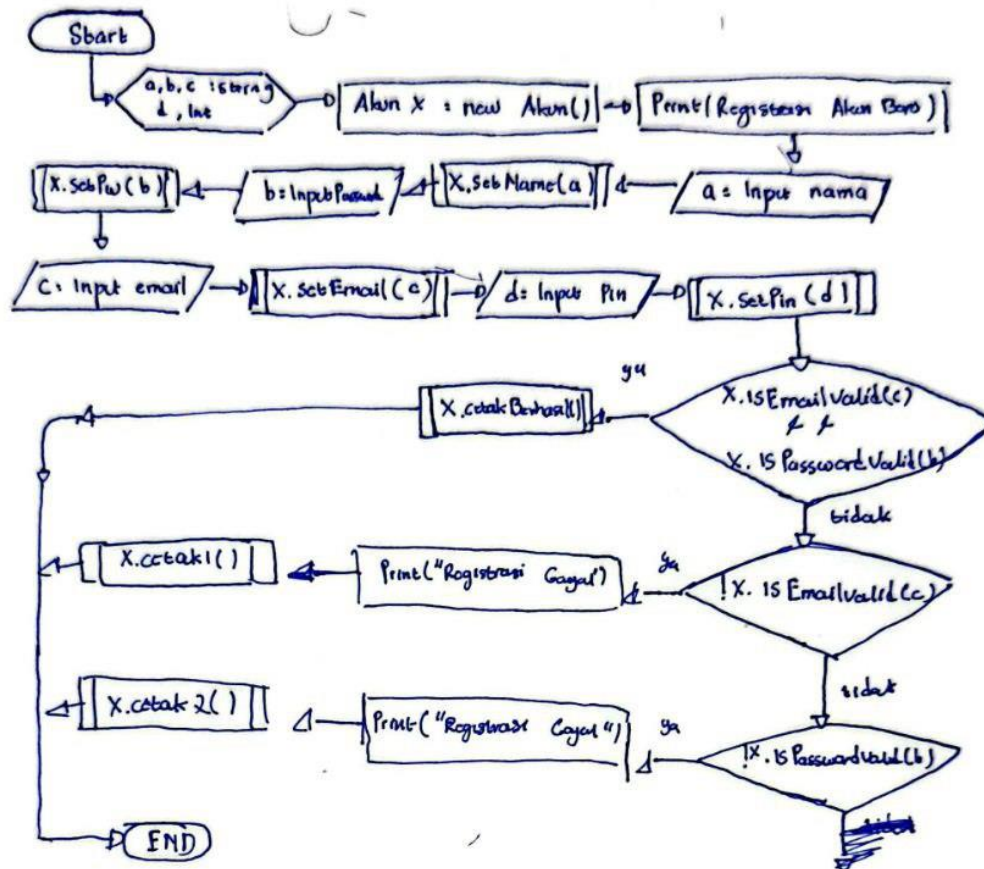 Start
a, b, c : string
d, Int
Akun X = new Akun()
Print(Registrasi Akun Baru)
a = Input nama
X.setName(a)
b = Input Password
X.setPw(b)
C = Input email
X.setEmail(c)
d = Input Pin
X.setPin(d)
X.isEmailValid(c)
& &
X.isPasswordValid(b)
ya
X.cetakBerhasil()
tidak
!X.isEmailValid(c)
ya
Print("Registrasi Gagal")
X.cetak1()
tidak
!X.isPasswordValid(b)
ya
Print("Registrasi Gagal")
X.cetak2()
END